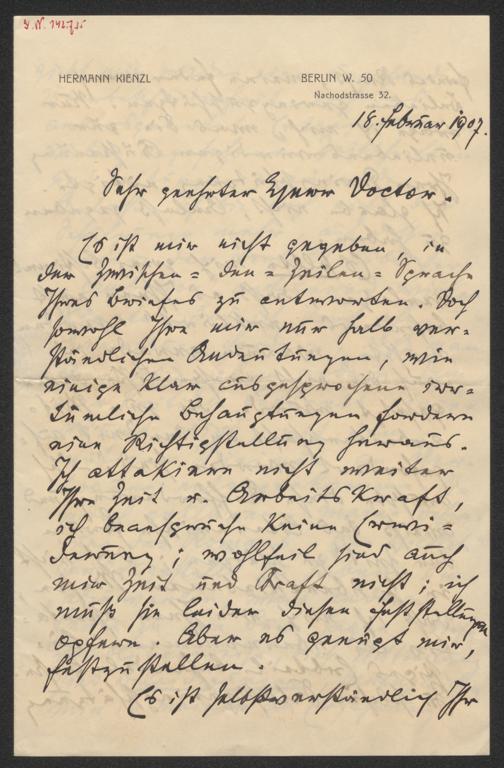 J. N. 142.735
HERMANN KIENZL
BERLIN W. 50
Nachodstrasse 32.
18. Februar 1907.
Sehr geehrter Herr Doctor.
Es ist mir nicht gegeben, in
der Zwischen=den=Zeilen=Sprache
Ihres Briefes zu antworten. Doch
sowohl Ihre mir nur halb ver=
ständlichen Andeutungen, wie
einige klar ausgesprochene irr=
tümliche Behauptungen fordern
eine Richtigstellung heraus.
Ich attakiere nicht weiter
Ihre Zeit u. Arbeitskraft,
ich beanspruche keine Erwi=
derung; wohlfeil sind auch
mir Zeit und Kraft nicht; ich
muß sie leider diesen Feststellungen
opfern. Aber es genügt mir,
festzustellen.
Es ist selbstverständlich Ihr